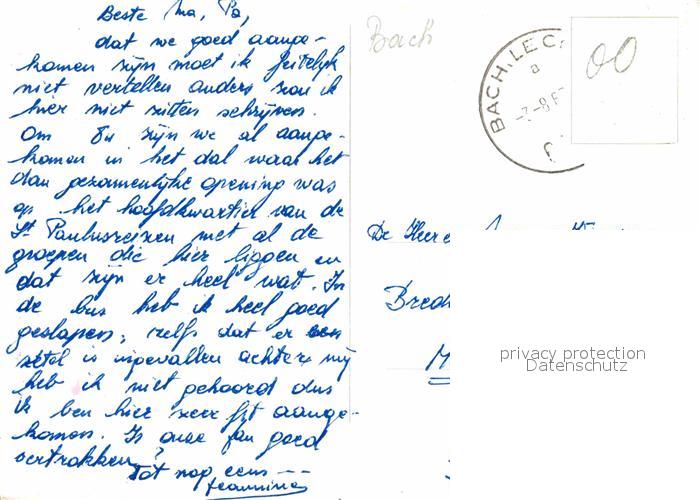 Beste Ma, Pa,
dat we goed aange-
komen zijn moet ik feitelijk
niet vertellen anders zou ik
hier niet zitten schrijven.
Om 8u zijn we al aange-
komen in het dal waar het
dan gezamenlijke opening was
op het hoofdkwartier van de
St Paulusreizen met al de
groepen die hier liggen en
dat zijn er heel wat. In
de bus heb ik heel goed
geslapen, zelfs dat er een
zetel is ingevallen achter mij
heb ik niet gehoord dus
ik ben hier zeer fit aange-
komen. Is onze Jan goed
vertrokken?
Tot nog eens ---
Jeannine
Bach
BACH, LEC
a
-7-8
00
De Heer e
Bred
M
privacy protection
Datenschutz